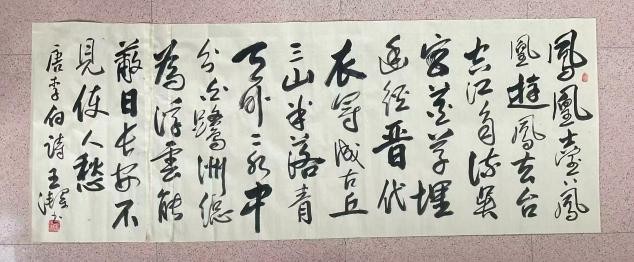 鳳凰臺上鳳
凰遊鳳去台
空江自流吳
宮花草埋
幽徑晉代
衣冠成古丘
三山半落青
天外二水中
分白鷺洲總
為浮雲能
蔽日長安不
見使人愁
唐李白詩王
書